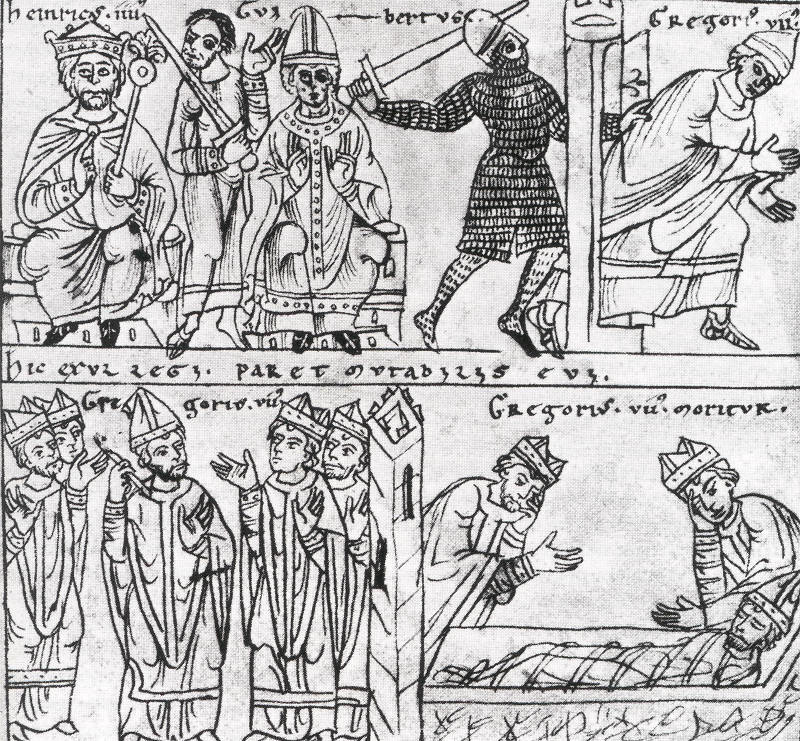 heinricꝰ. iiiiꝰ Gui bertus. Gregoriꝰ. viiꝰ
hic exul regi. paret mutabilis cui.
Gre goriꝰ. viiꝰ Gregoriꝰ. viiꝰ. moritur.